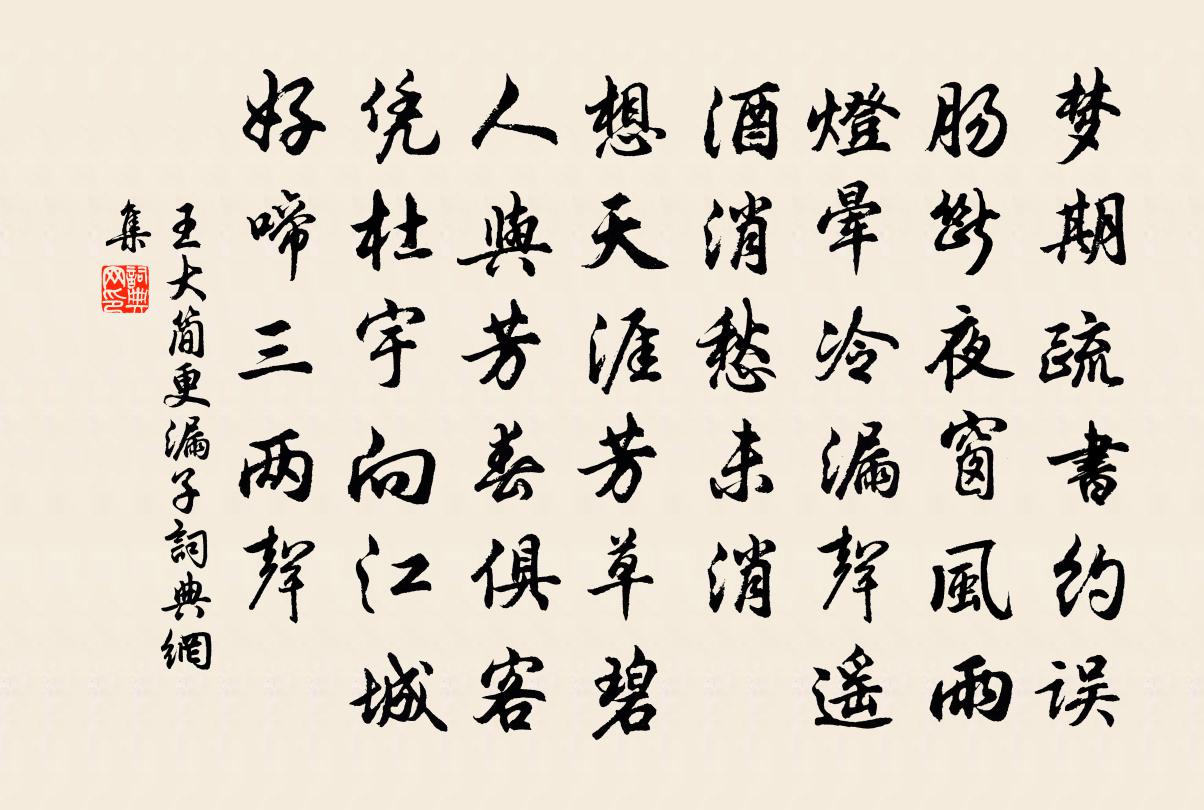 梦期疏書约误
肠斷夜窗風雨
燈暈冷漏聲遥
酒消愁未消
想天涯芳草碧
人與芳春俱客
凭杜宇向江城
好啼三两聲
王大简更漏子詞典網
集
詞典
网印